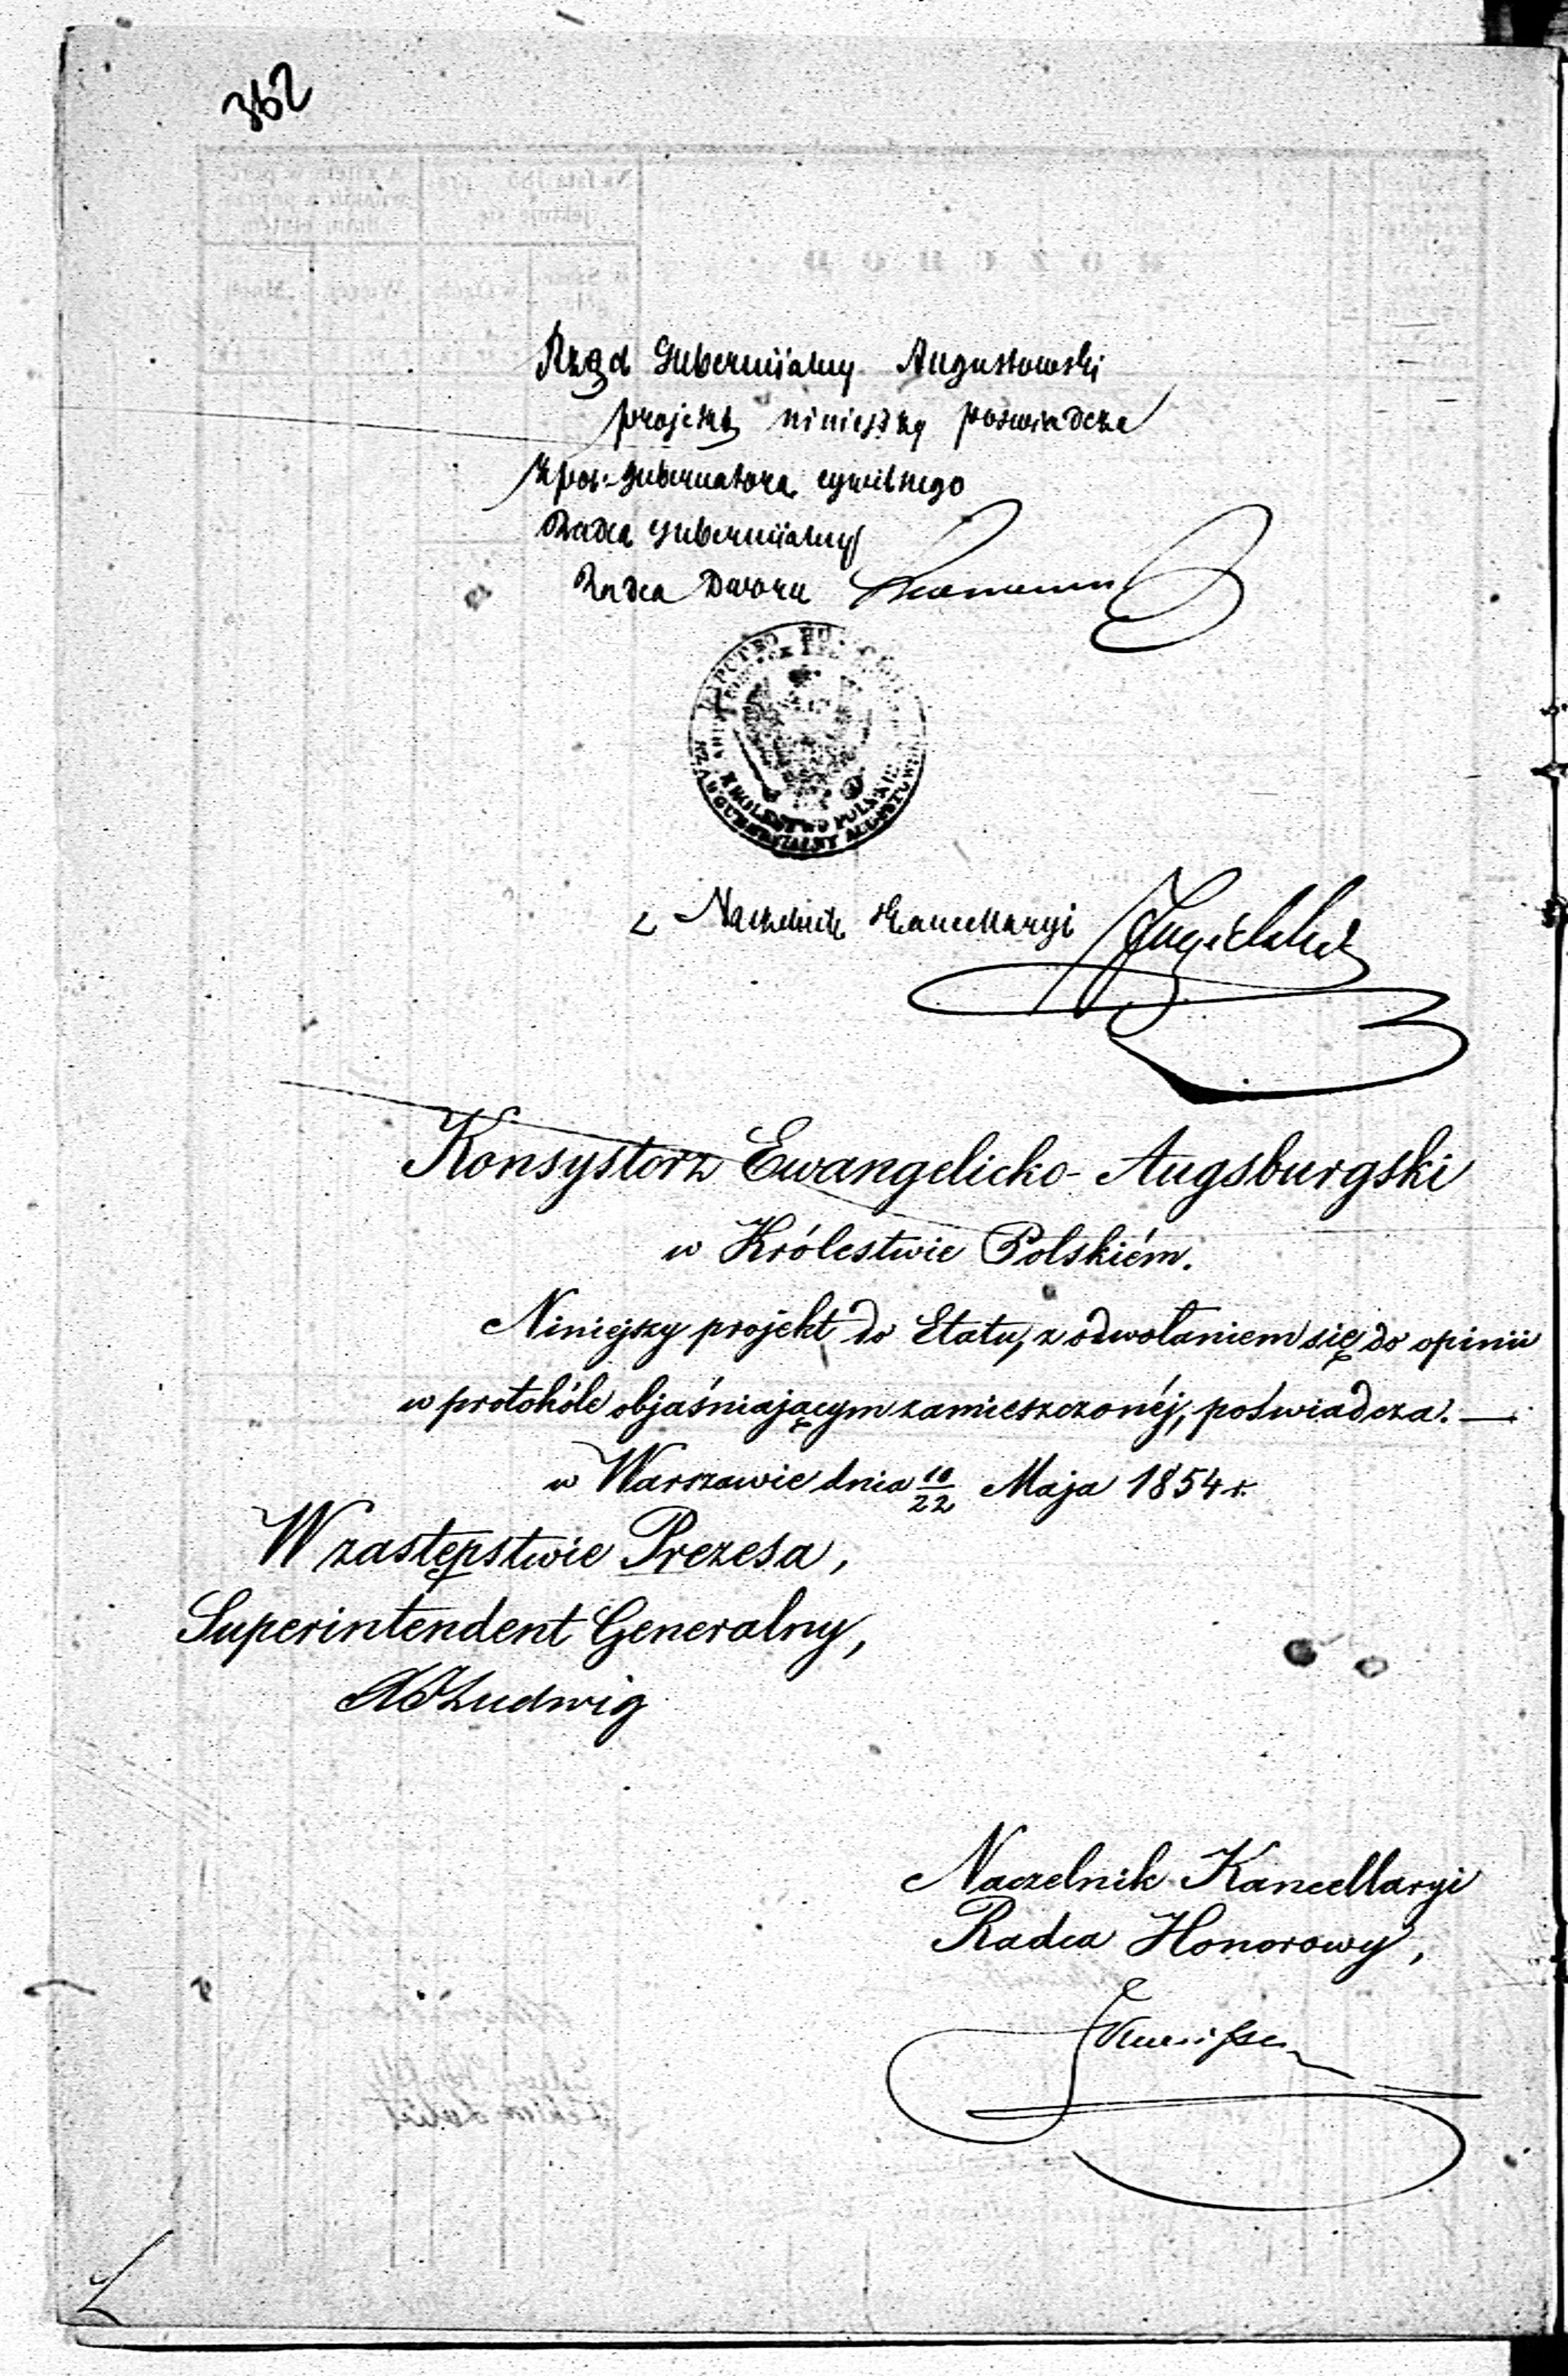 362
Rząd Gubernijalny Augustowski
projekt niniejszy poswiadcza
Gubernatora cywilnego
Radca Gubernijalny
Radca Dworu
KRÓLESTWO POLSKIE
RZĄD GUBERNIALNY AUGUSTOWSKI
Naczelnik Kancellaryi
Konsystorz Ewangelicko-Augsburgski
w Królestwie Polskiém.
Niniejszy projekt do Etatu, z odwołaniem się do opinii
w protokóle objaśniającym zamieszczonéj, poświadcza. —
w Warszawie dnia 10/22 Maja 1854 r.
W zastępstwie Prezesa,
Superintendent Generalny,
Ludwig
Naczelnik Kancellaryi
Radca Honorowy,